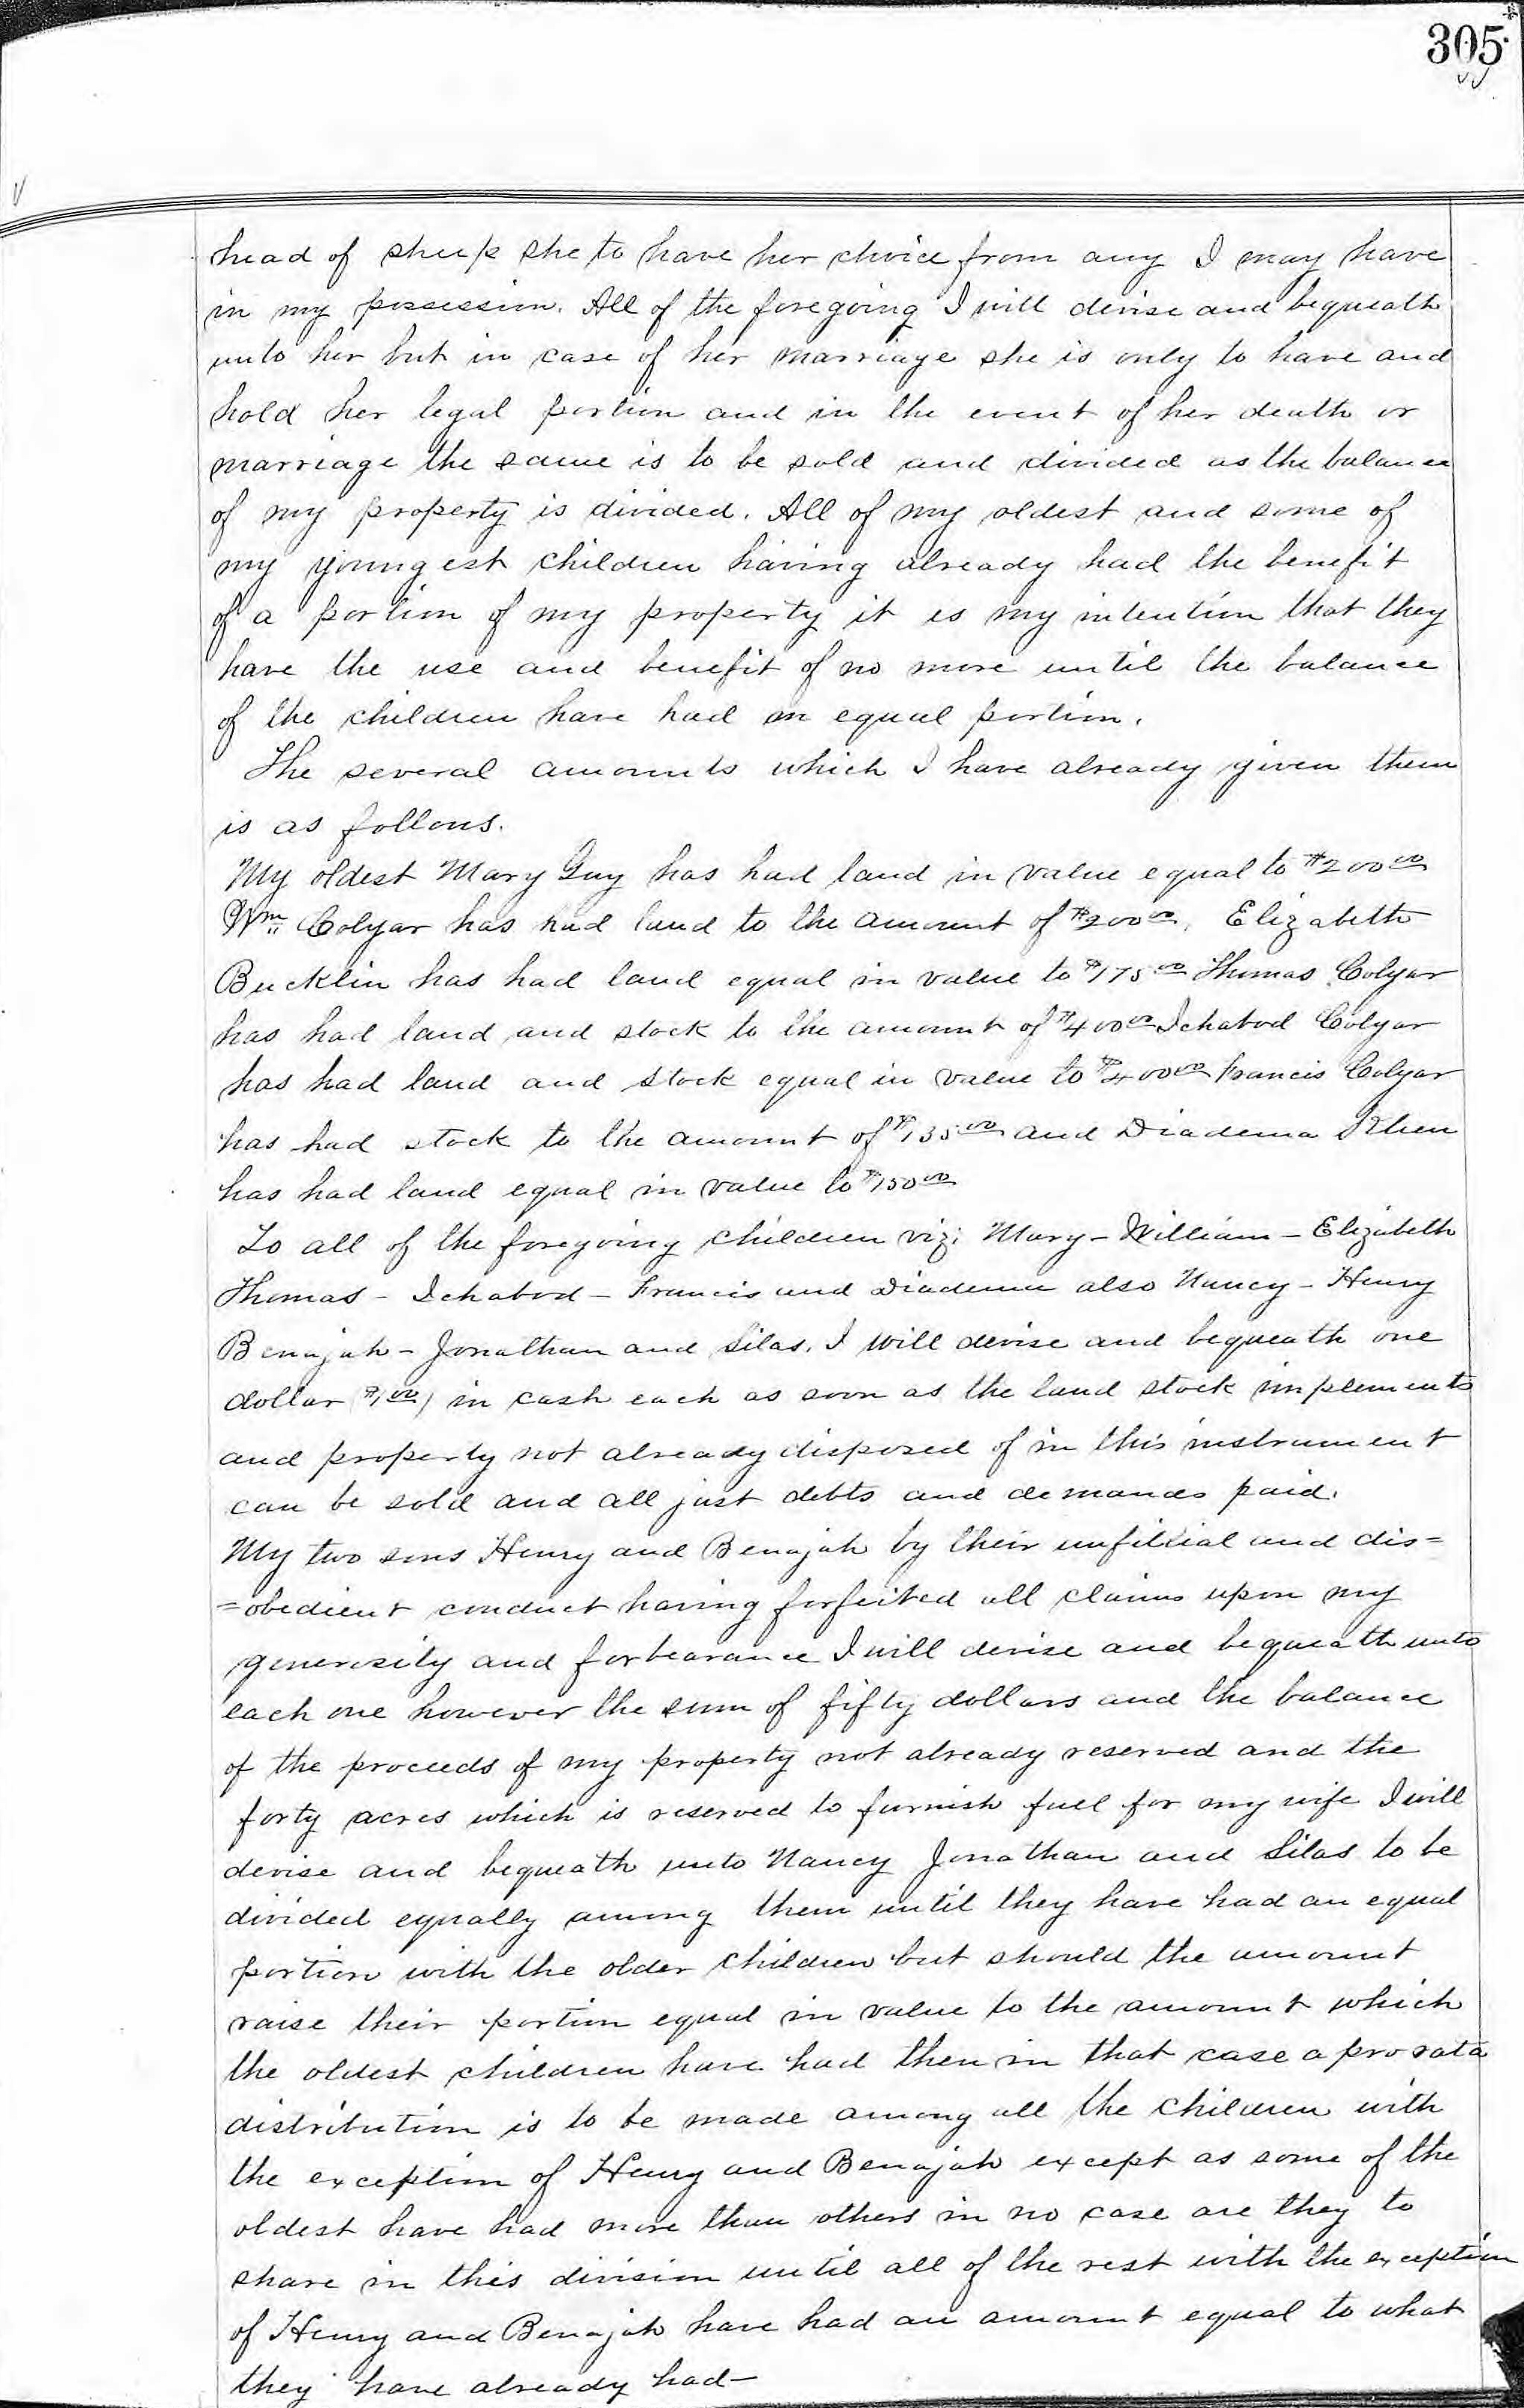 305
head of sheep she to have her choice from any I may have
in my possession. All of the foregoing I will devise and bequeath
unto her but in case of her marriage she is only to have and
hold her legal portion and in the event of her death or
marriage the same is to be sold and divided as the balance
of my property is divided. All of my oldest and some of
my youngest children having already had the benefit
of a portion of my property it is my intention that they
have the use and benefit of no more until the balance
of the children have had an equal portion.
The several amounts which I have already given them
is as follows.
My oldest Mary Guy has had land in value equal to $200.00
Wm Colyar has had land to the amount of $200.00, Elizabeth
Bucklin has had land equal in value to $175.00 Thomas Colyar
has had land and stock to the amount of $400.00 Ichabod Colyar
has had land and stock equal in value to $400.00 Francis Colyar
has had stock to the amount of $135.00 and Diadema
has had land equal in value to $150.00
To all of the foregoing children viz; Mary - William - Elizabeth
Thomas - Ichabod - Francis and Diadema also Nancy - Henry
Benajah - Jonathan and Silas. I will devise and bequeath one
dollar $1.00) in cash each as soon as the land stock implements
and property not already disposed of in this instrument
can be sold and all just debts and demands paid.
My two sons Henry and Benajah by their unfilial and dis=
=obedient conduct having forfeited all claims upon my
generosity and forbearance I will devise and bequeath unto
each one however the sum of fifty dollars and the balance
of the proceeds of my property not already reserved and the
forty acres which is reserved to furnish fuel for my wife I will
devise and bequeath unto Nancy Jonathan and Silas to be
divided equally among them until they have had an equal
portion with the older children but should the amount
raise their portion equal in value to the amount which
the oldest children have had then in that case a pro rata
distribution is to be made among all the children with
the exception of Henry and Benajah except as some of the
oldest have had more than others in no case are they to
share in this division until all of the rest with the exception
of Henry and Benajah have had an amount equal to what
they have already had-